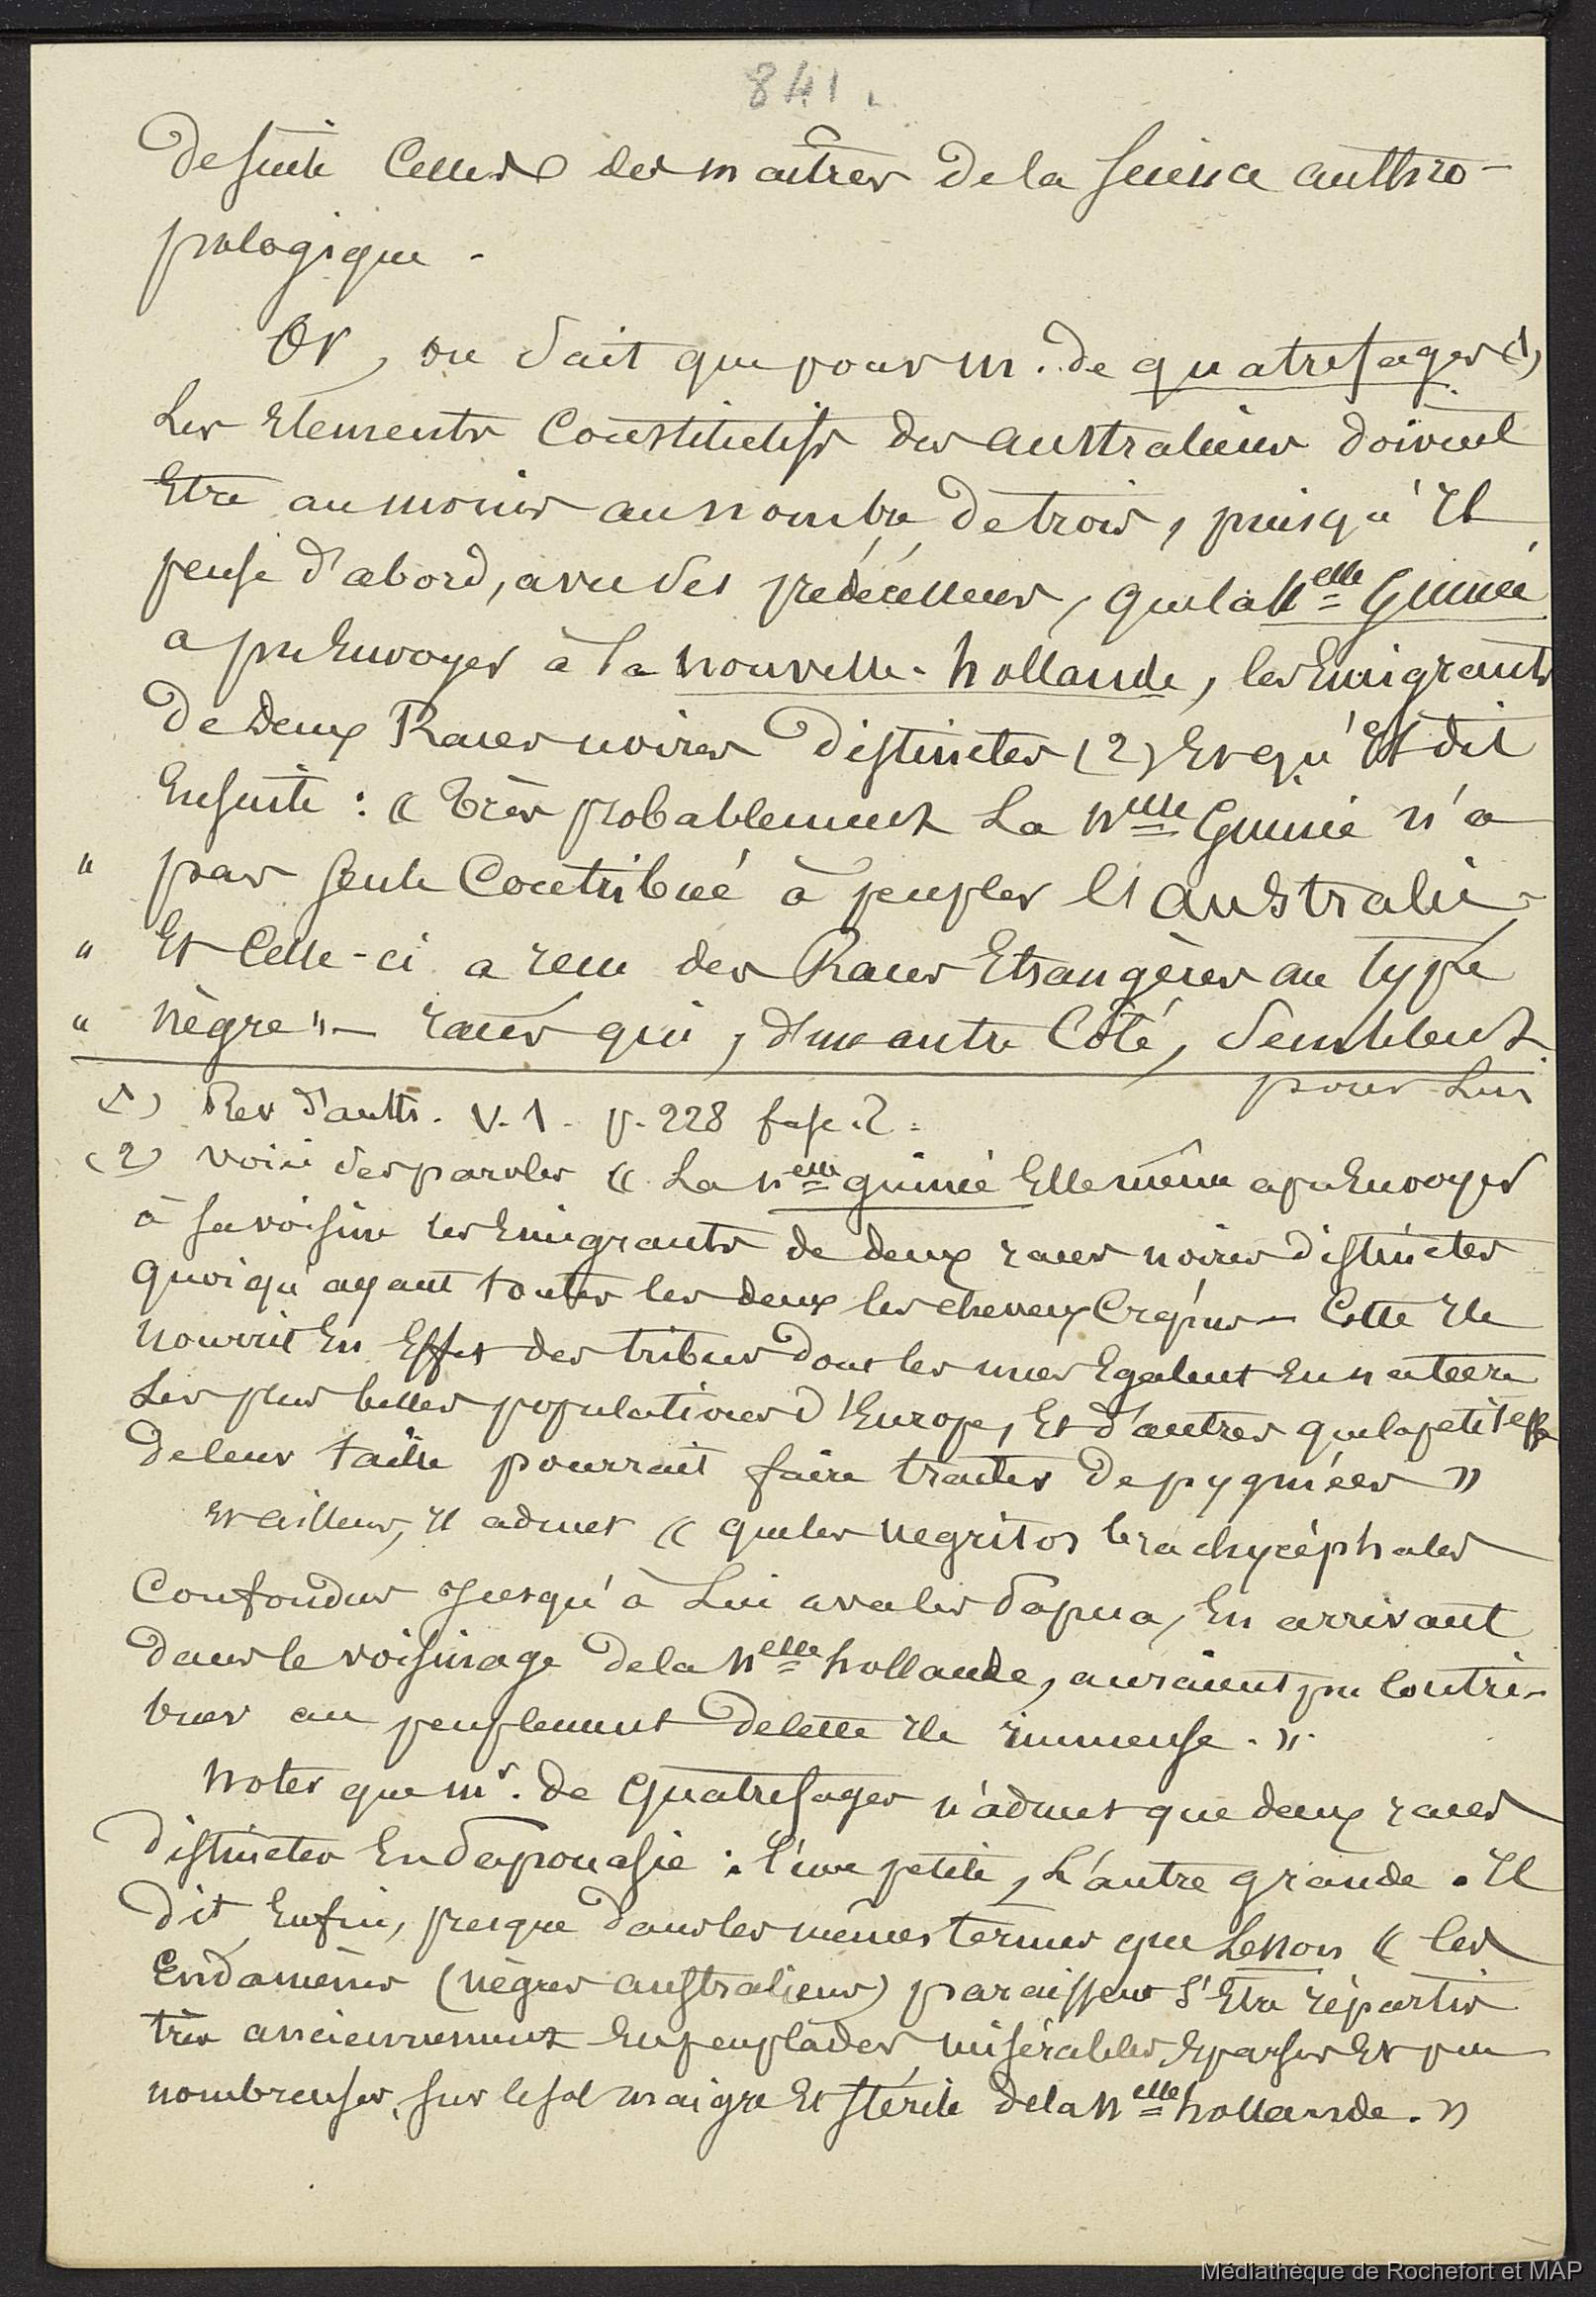 841.
de suite celles des maîtres de la science anthro-
pologique.
Or, on sait que pour m. de quatrefages (1)
Les Elements Constitutifs des australiens doivent
Etre au moins au nombre de trois, puisqu'Il
pense d'abord, avec ses prédécesseurs, que la Nelle Guinée
a pu Envoyer à la nouvelle-hollande, les Emigrants
de deux Races noires distinctes (2) Et qu'Il dit
Ensuite : « Très probablement La Nelle Guinée n'a
" pas seule Contribué à peupler l'australie,
" Et Celle-ci a reçu des Races Etrangères au type
" nègre" — races qui, d'un autre Côté, semblent
pour Lui
(1) Rev d'anth. V. 1. p. 228 fasc. 2.
(2) voici ses paroles « La nelle guinée Elle même a pu Envoyer
à sa voisine les Emigrants de deux races noires distinctes
quoiqu'ayant toutes les deux les cheveux Crépus — Cette Ile
nourrit En Effet des tribus dont les unes Egalent En stature
Les plus belles populations d'Europe, Et d'autres que la petitesse
de leur taille pourrait faire traiter de pygmées »
Et ailleurs, Il admet « que les negritos brachycéphales
Confondus Jusqu'à Lui avec les Papua, En arrivant
dans le voisinage de la Nelle hollande, auraient pu Contri-
buer au peuplement de cette Ile immense. »
Noter que mr. de Quatrefages n'admet que deux races
distinctes En Papouasie : l'une petite, L'autre grande. Il
dit Enfin, presque dans les mêmes termes que Lesson « les
Endamènes (nègres australiens) paraissent s'Etre répartis
très anciennement En peuplades misérables, Eparses Et peu
nombreuses, sur le sol maigre Et stérile de la Nelle hollande. »
Médiathèque de Rochefort et MAP